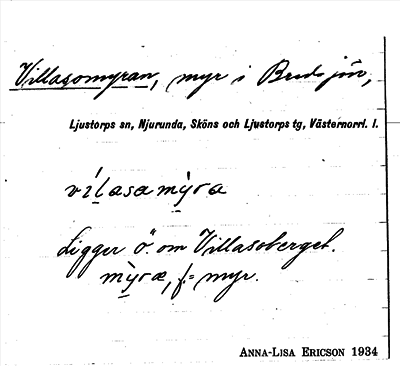 Villasomyran, myr i Bredsjön,
Ljustorps sn, Njurunda, Sköns och Ljustorps tg, Västernorrl. l.
vílasa mỳra
Ligger ö. om Villasoberget.
mỳra, f. = myr.
ANNA-LISA ERICSON 1934